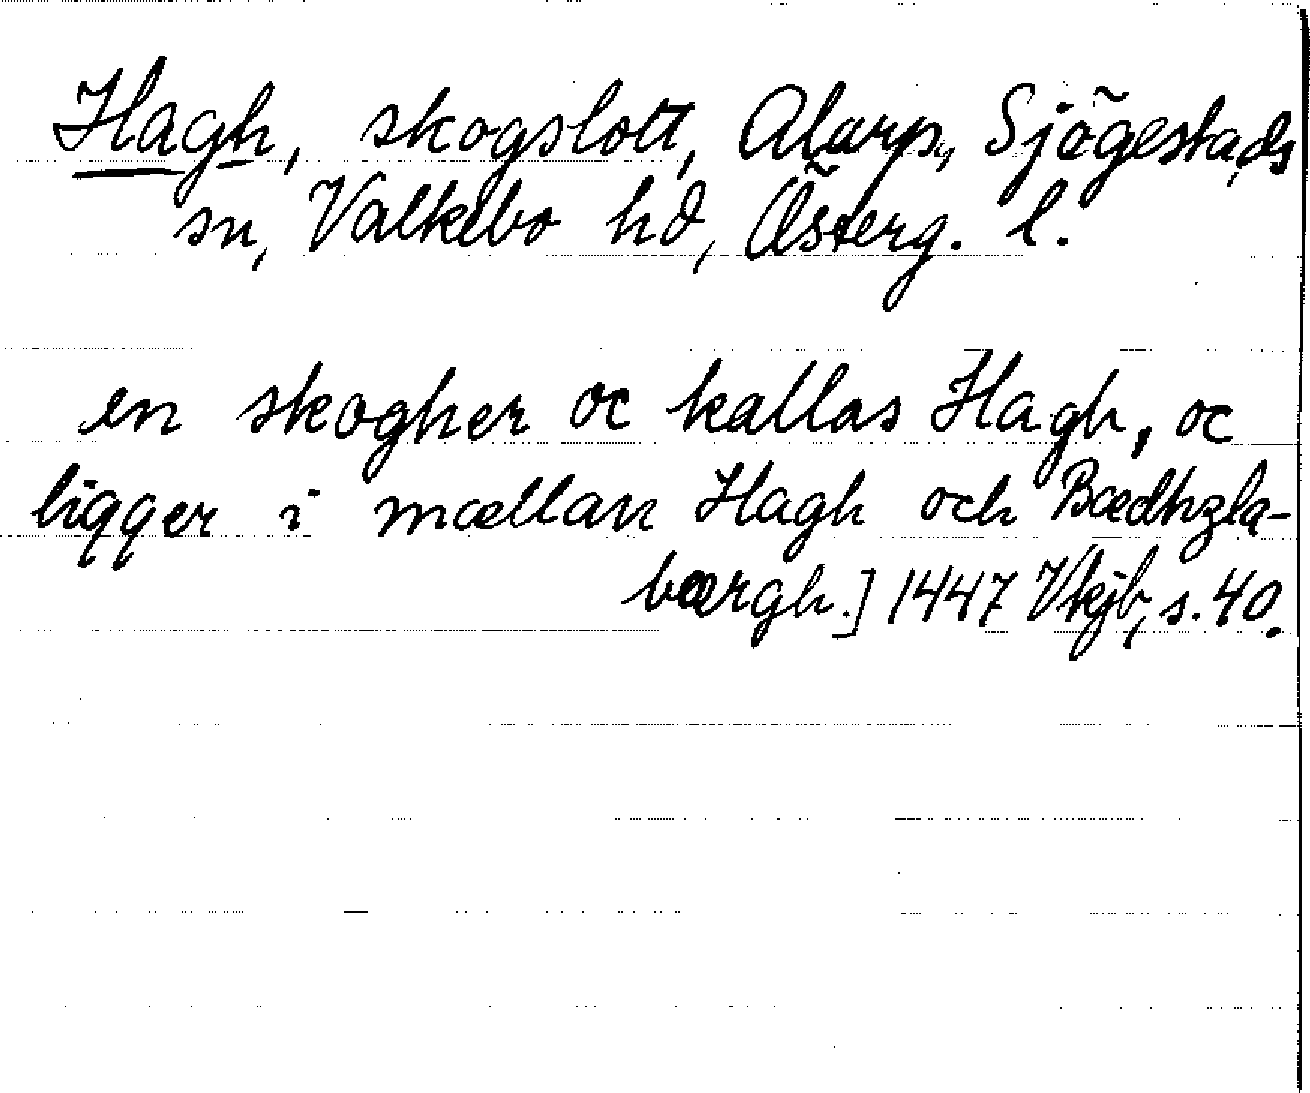 Hagh, skogslott, Alarp, Sjögestads
sn, Valkebo hd, Österg. l.
en skogher oc kallas Hagh, oc
ligger i mællan Hagh och Bædhzla-
bærgh.] 1447 Vkjb, s. 40.